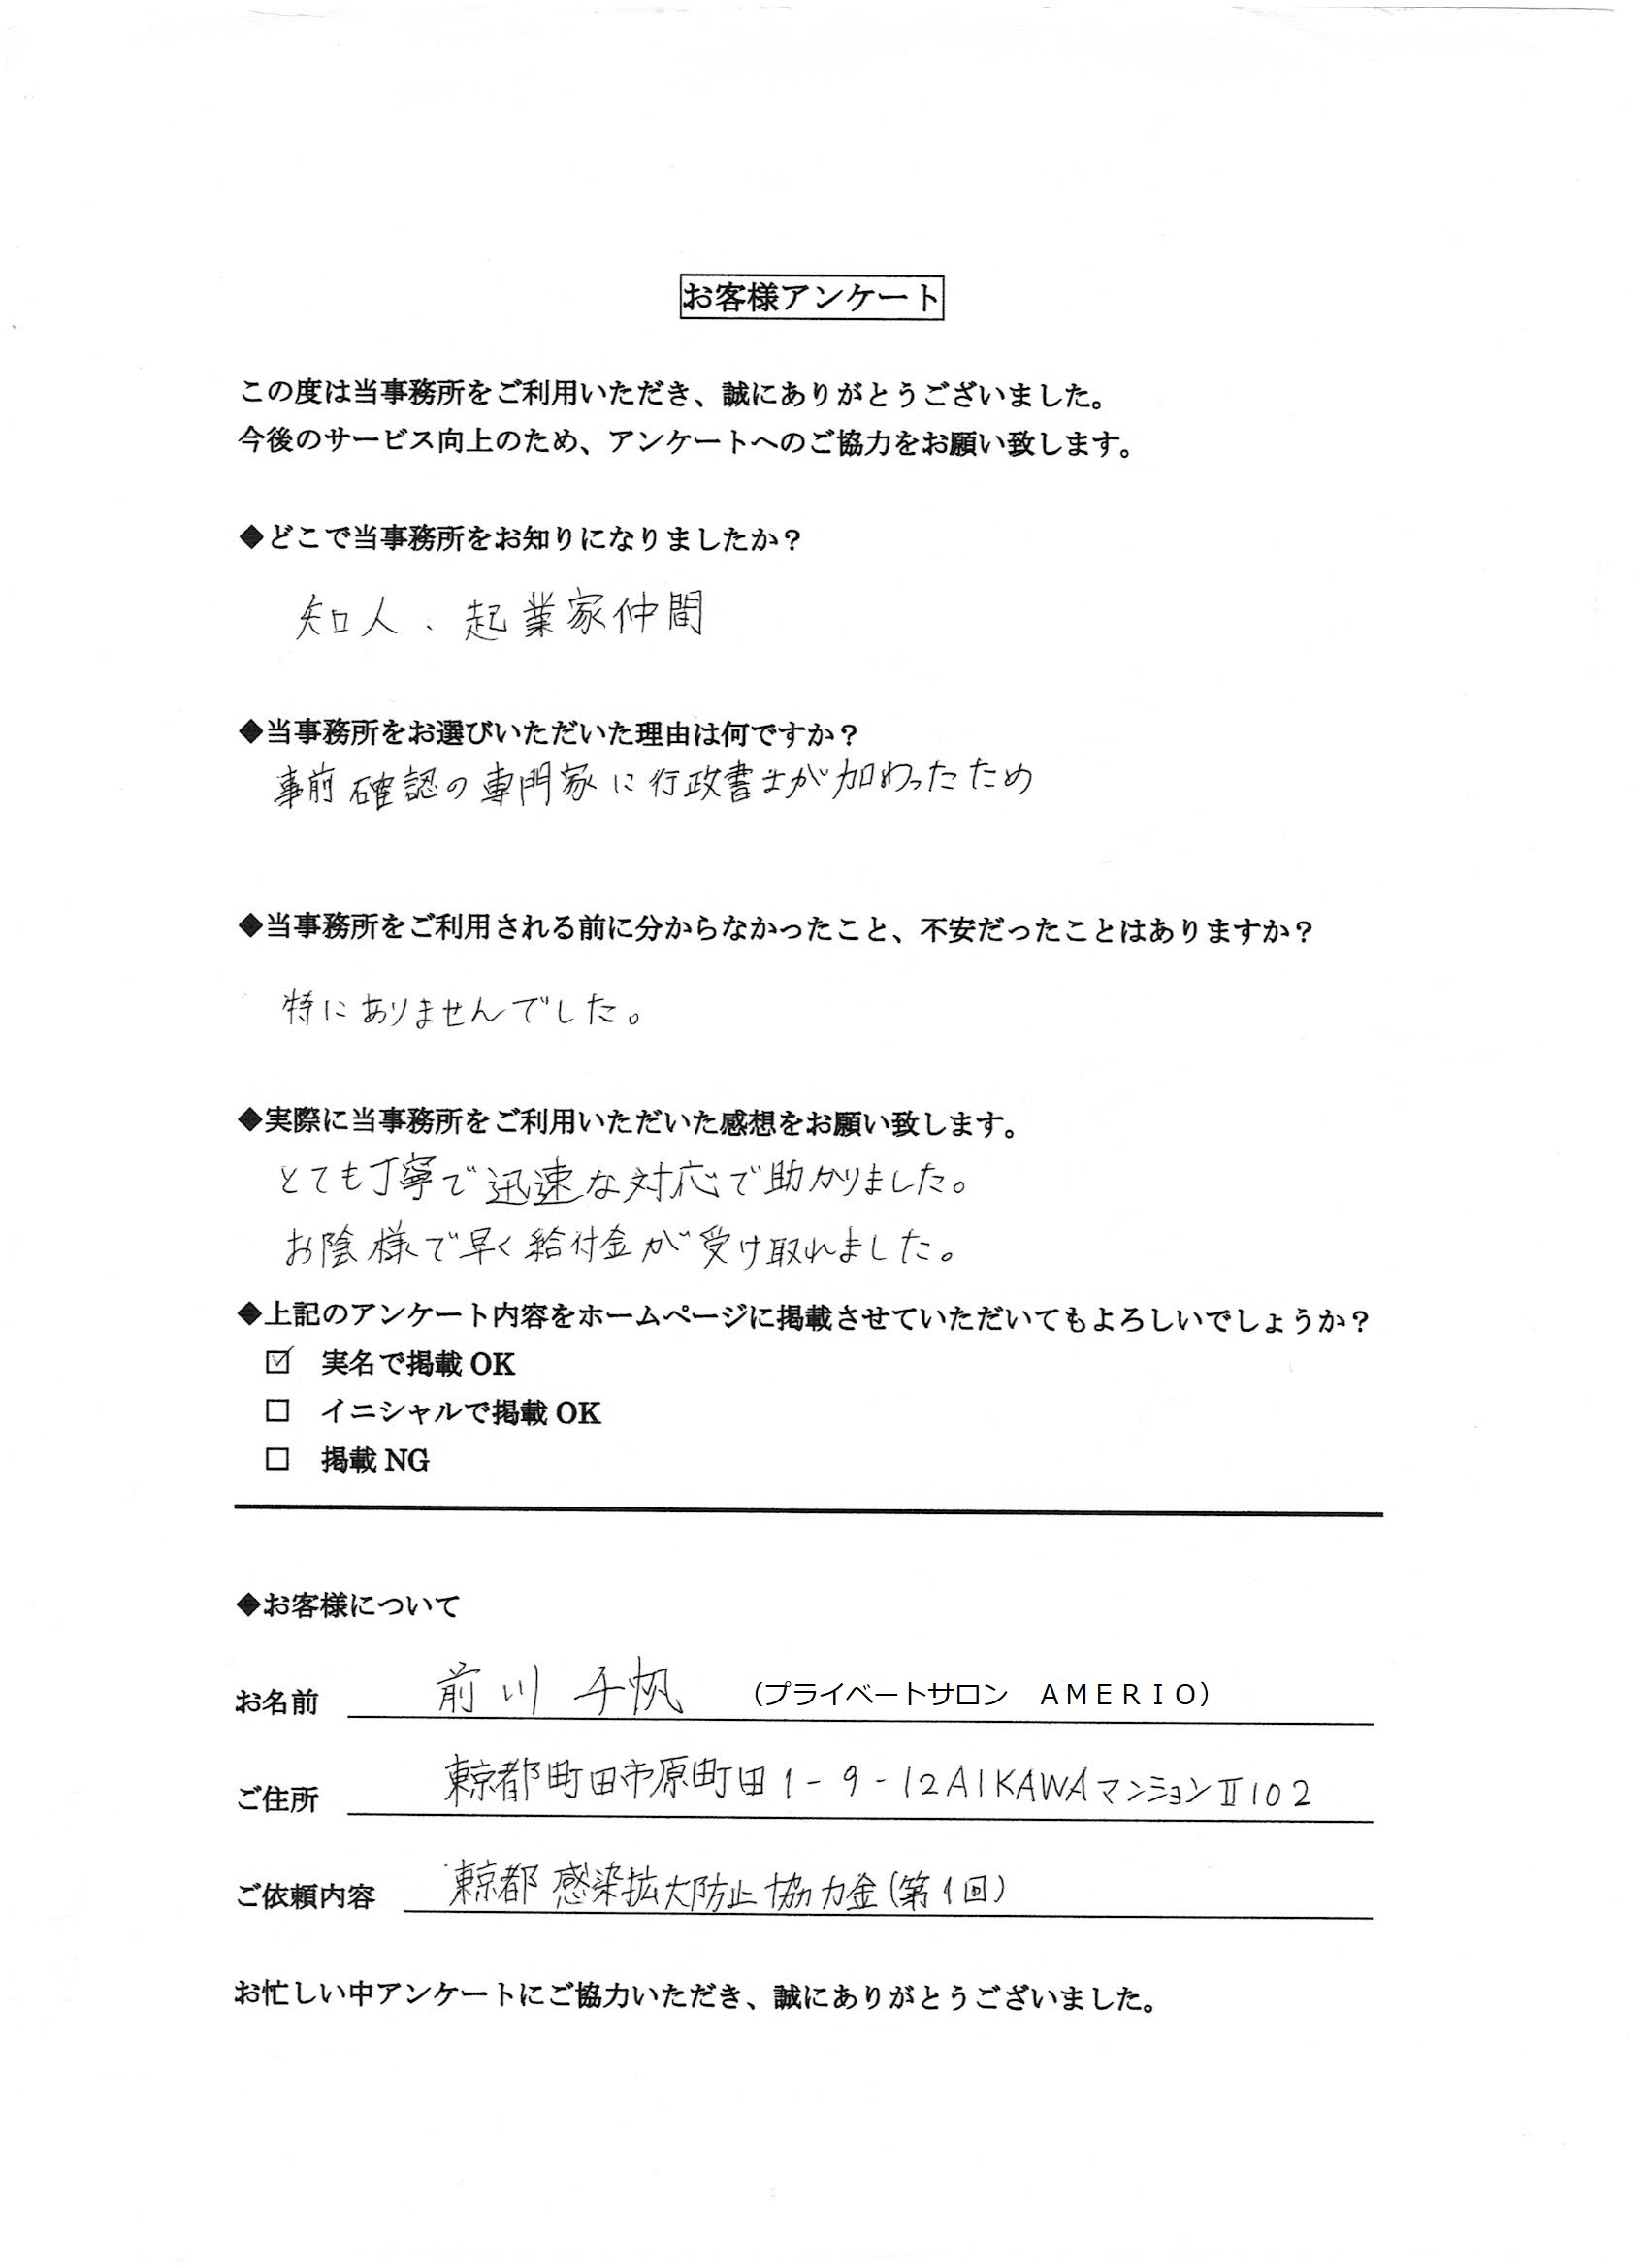 お客様アンケート
この度は当事務所をご利用いただき、誠にありがとうございました。
今後のサービス向上のため、アンケートへのご協力をお願い致します。
◆どこで当事務所をお知りになりましたか？
知人、起業家仲間
◆当事務所をお選びいただいた理由は何ですか？
事前確認の専門家に行政書士が加わったため
◆当事務所をご利用される前に分からなかったこと、不安だったことはありますか？
特にありませんでした。
◆実際に当事務所をご利用いただいた感想をお願い致します。
とても丁寧で迅速な対応で助かりました。
お陰様で早く給付金が受け取れました。
◆上記のアンケート内容をホームページに掲載させていただいてもよろしいでしょうか？
☑ 実名で掲載 OK
□ イニシャルで掲載 OK
□ 掲載 NG
◆お客様について
お名前 前川 千帆 （プライベートサロン　ＡＭＥＲＩＯ）
ご住所 東京都町田市原町田1-9-12AIKAWAマンションⅡ102
ご依頼内容 東京都感染拡大防止協力金(第1回)
お忙しい中アンケートにご協力いただき、誠にありがとうございました。